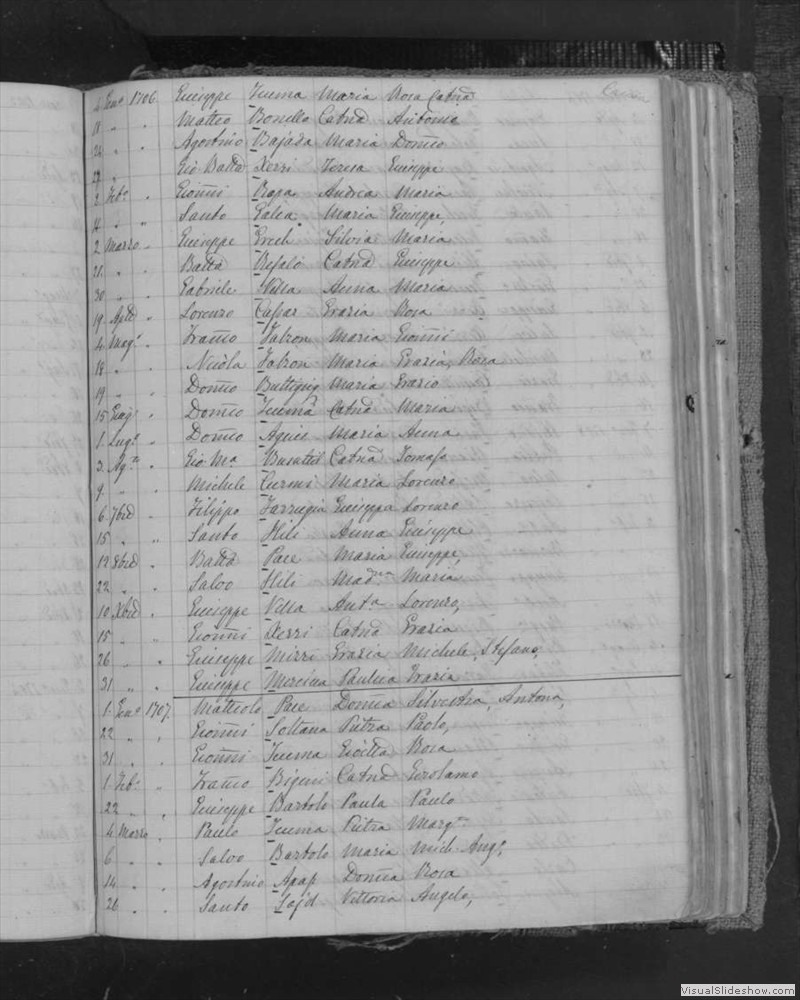 4 Enro 1706. Giuseppe Zuema Maria Rosa Catna
11 " . Matteo Bonello Catna Antonia
24 " . Agostino Bajada Maria Domco
27 " Gio Batta Xerri Teresa Giuseppe
2 Febo . Gionni Rapa Andrea Maria
11 " . Santo Galea Maria Giuseppe,
2 Marzo . Giuseppe Grech Silvia Maria
21. " . Batta Refalo Catna Giuseppe
30 " . Gabriele Vella Anna Maria
19. Aple . Lorenzo Cassar Grazia Rosa
4 Mago . Franco Zabron Maria Gionni
18 " . Nicola Zabron Maria Grazia, Rosa
19 " . Domco Buttigieg Maria Grazio
15 Giugo . Domco Zuema Catna Maria
1. Lugo . Domco Agius Maria Anna
3. Ago . Gio Ma Busuttil Catna Tomasa
9. " . Michele Curmi Maria Lorenzo
6 7bre . Filippo Farrugia Giuseppa Lorenzo
15 " " Santo Hili Anna Giuseppe
12 8bre . Batta Pace Maria Giuseppe,
22 " . Salvo Hili Madna Maria
10 Xbre . Giuseppe Vella Anta Lorenzo,
15 " " Gionni Xerri Catna Grazia
26 " . Giuseppe Mizzi Grazia Michele, Stefano,
31 " . Giuseppe Mercieca Paulica Grazia
1. Enro 1707. Matteolo Pace Domca Silvestra, Antona,
22 " , Gionni Soltana Pietra Paolo,
31 " . Gionni Zuema Gioetta Rosa
1. Febo " Franco Bigeni Catna Girolamo
22 " , Giuseppe Bartolo Paula Paulo
4 Marzo . Paulo Zuema Pietra Margta
6 " . Salvo Bartolo Maria Mich. Ango,
14 " . Agostino Apap Domca Rosa
26 " . Santo Said Vittoria Angelo,